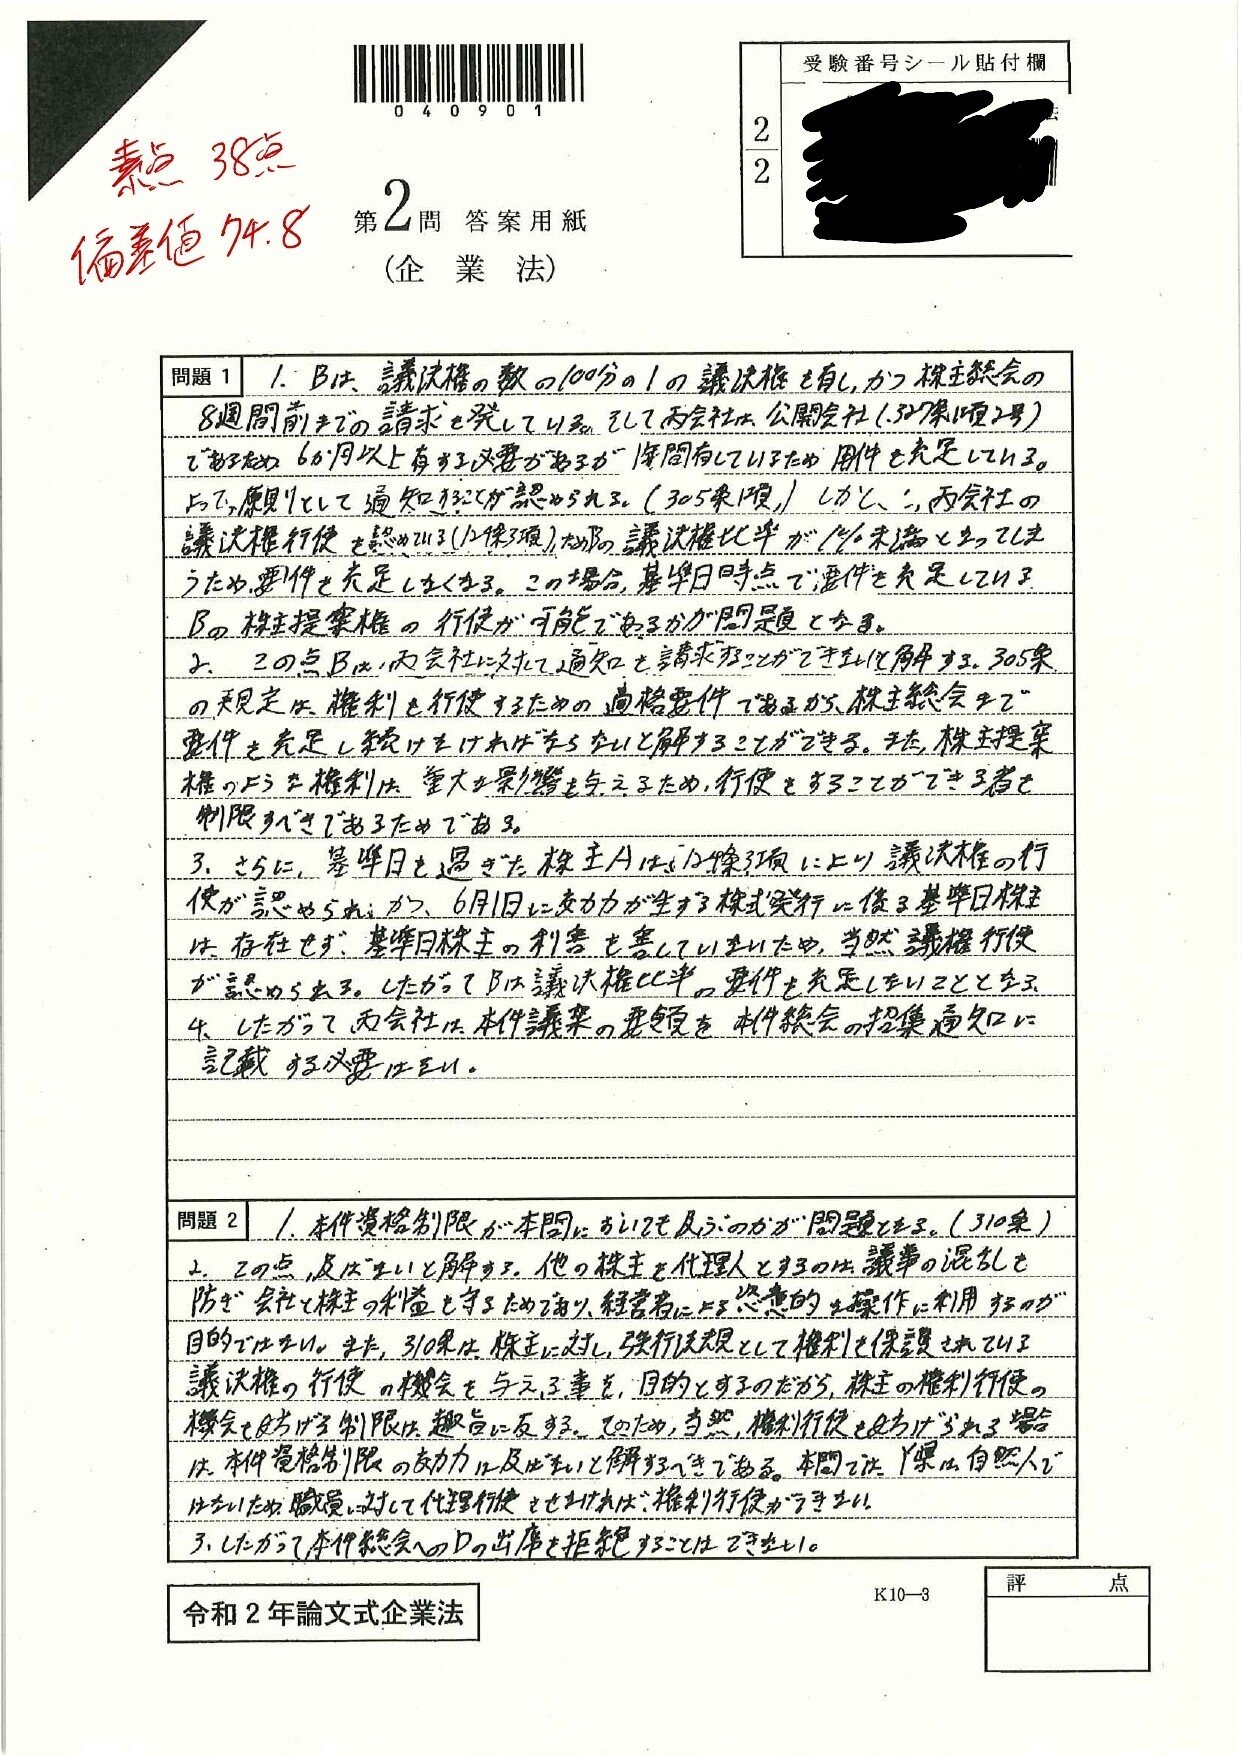 040901
受験番号シール貼付欄
2
2
素点 38点
偏差値 74.8
第2問 答案用紙
(企業法)
問題1
1. Bは、議決権の数の100分の1の議決権を有し、かつ株主総会の
8週間前までの請求を発している。そして丙会社は、公開会社(327条1項2号)
であるため、6か月以上有する必要があるが 1年間有しているため 用件を充足している。
よって、原則として通知することが認められる。(305条1項) しかし、丙会社の
議決権行使を認めている(124条3項)ためBの議決権比率が1%未満となってしま
うため、要件を充足しなくなる。この場合、基準日時点で要件を充足している
Bの株主提案権の行使が可能であるかが問題となる。
2. この点Bは、丙会社に対して通知を請求することができないと解する。305条
の規定は、権利を行使するための適格要件であるから、株主総会まで
要件を充足し続けなければならないと解することができる。また、株主提案
権のような権利は、重大な影響を与えるため、行使をすることができる者を
制限すべきであるためである。
3. さらに、基準日を過ぎた株主Aは、124条3項により議決権の行
使が認められ、かつ、6月1日に効力が生ずる株式発行に係る基準日株主
は、存在せず、基準日株主の利害を害していないため、当然議権行使
が認められる。したがってBは議決権比率の要件を充足しないこととなる。
4. したがって丙会社は、本件議案の要領を本件総会の招集通知に
記載する必要はない。
問題2
1. 本件資格制限が本問においても及ぶのかが問題となる。(310条)
2. この点、及ばないと解する。他の株主を代理人とするのは、議事の混乱を
防ぎ会社と株主の利益を守るためであり、経営者による恣意的な操作に利用するのが
目的ではない。また、310条は、株主に対し、強行法規として権利を保護されている
議決権の行使の機会を与える事を、目的とするのだから、株主の権利行使の
機会を妨げる制限は、趣旨に反する。そのため、当然、権利行使を妨げられる場合
は、本件資格制限の効力は及ばないと解するべきである。本問では、Y県は、自然人で
はないため、職員に対して代理行使をさせなければ、権利行使ができない。
3. したがって本件総会へのDの出席を拒絶することはできない。
令和2年論文式企業法
K10—3
評 点